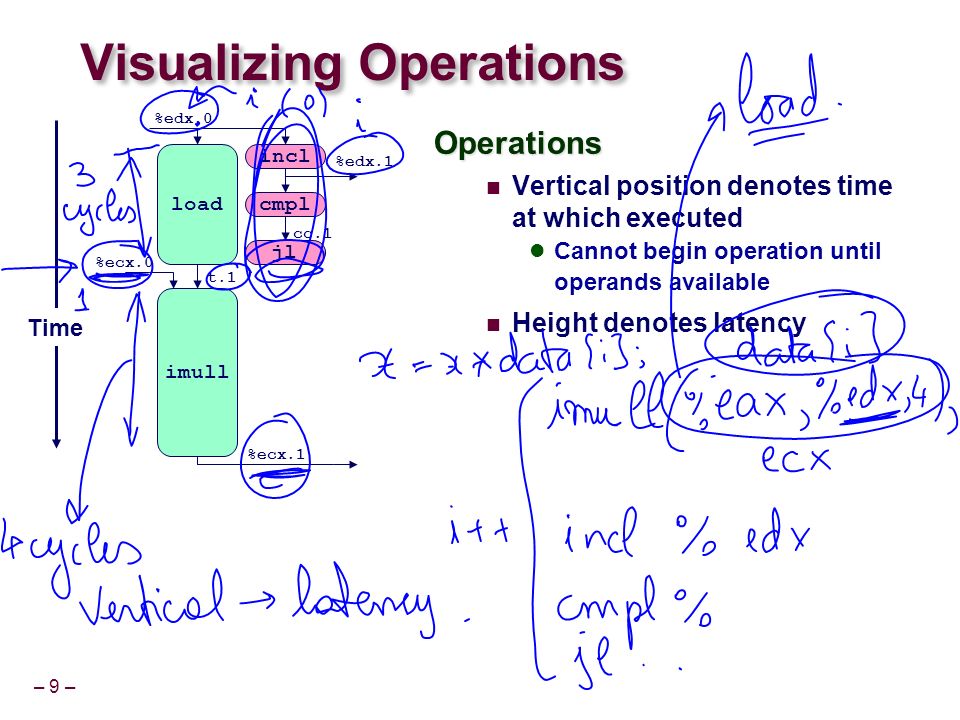 Visualizing Operations
i (0)
i
load.
%edx.0
Operations
incl
%edx.1
3 cycles
load
cmpl
Vertical position denotes time
at which executed
cc.1
jl
Cannot begin operation until
operands available
%ecx.0
t.1
1
Time
Height denotes latency
x = x * data[i];
data[i]
imull
imull (%eax, %edx, 4),
ecx
%ecx.1
4 cycles
i++
incl % edx
vertical → latency.
cmpl %
jl . .
– 9 –